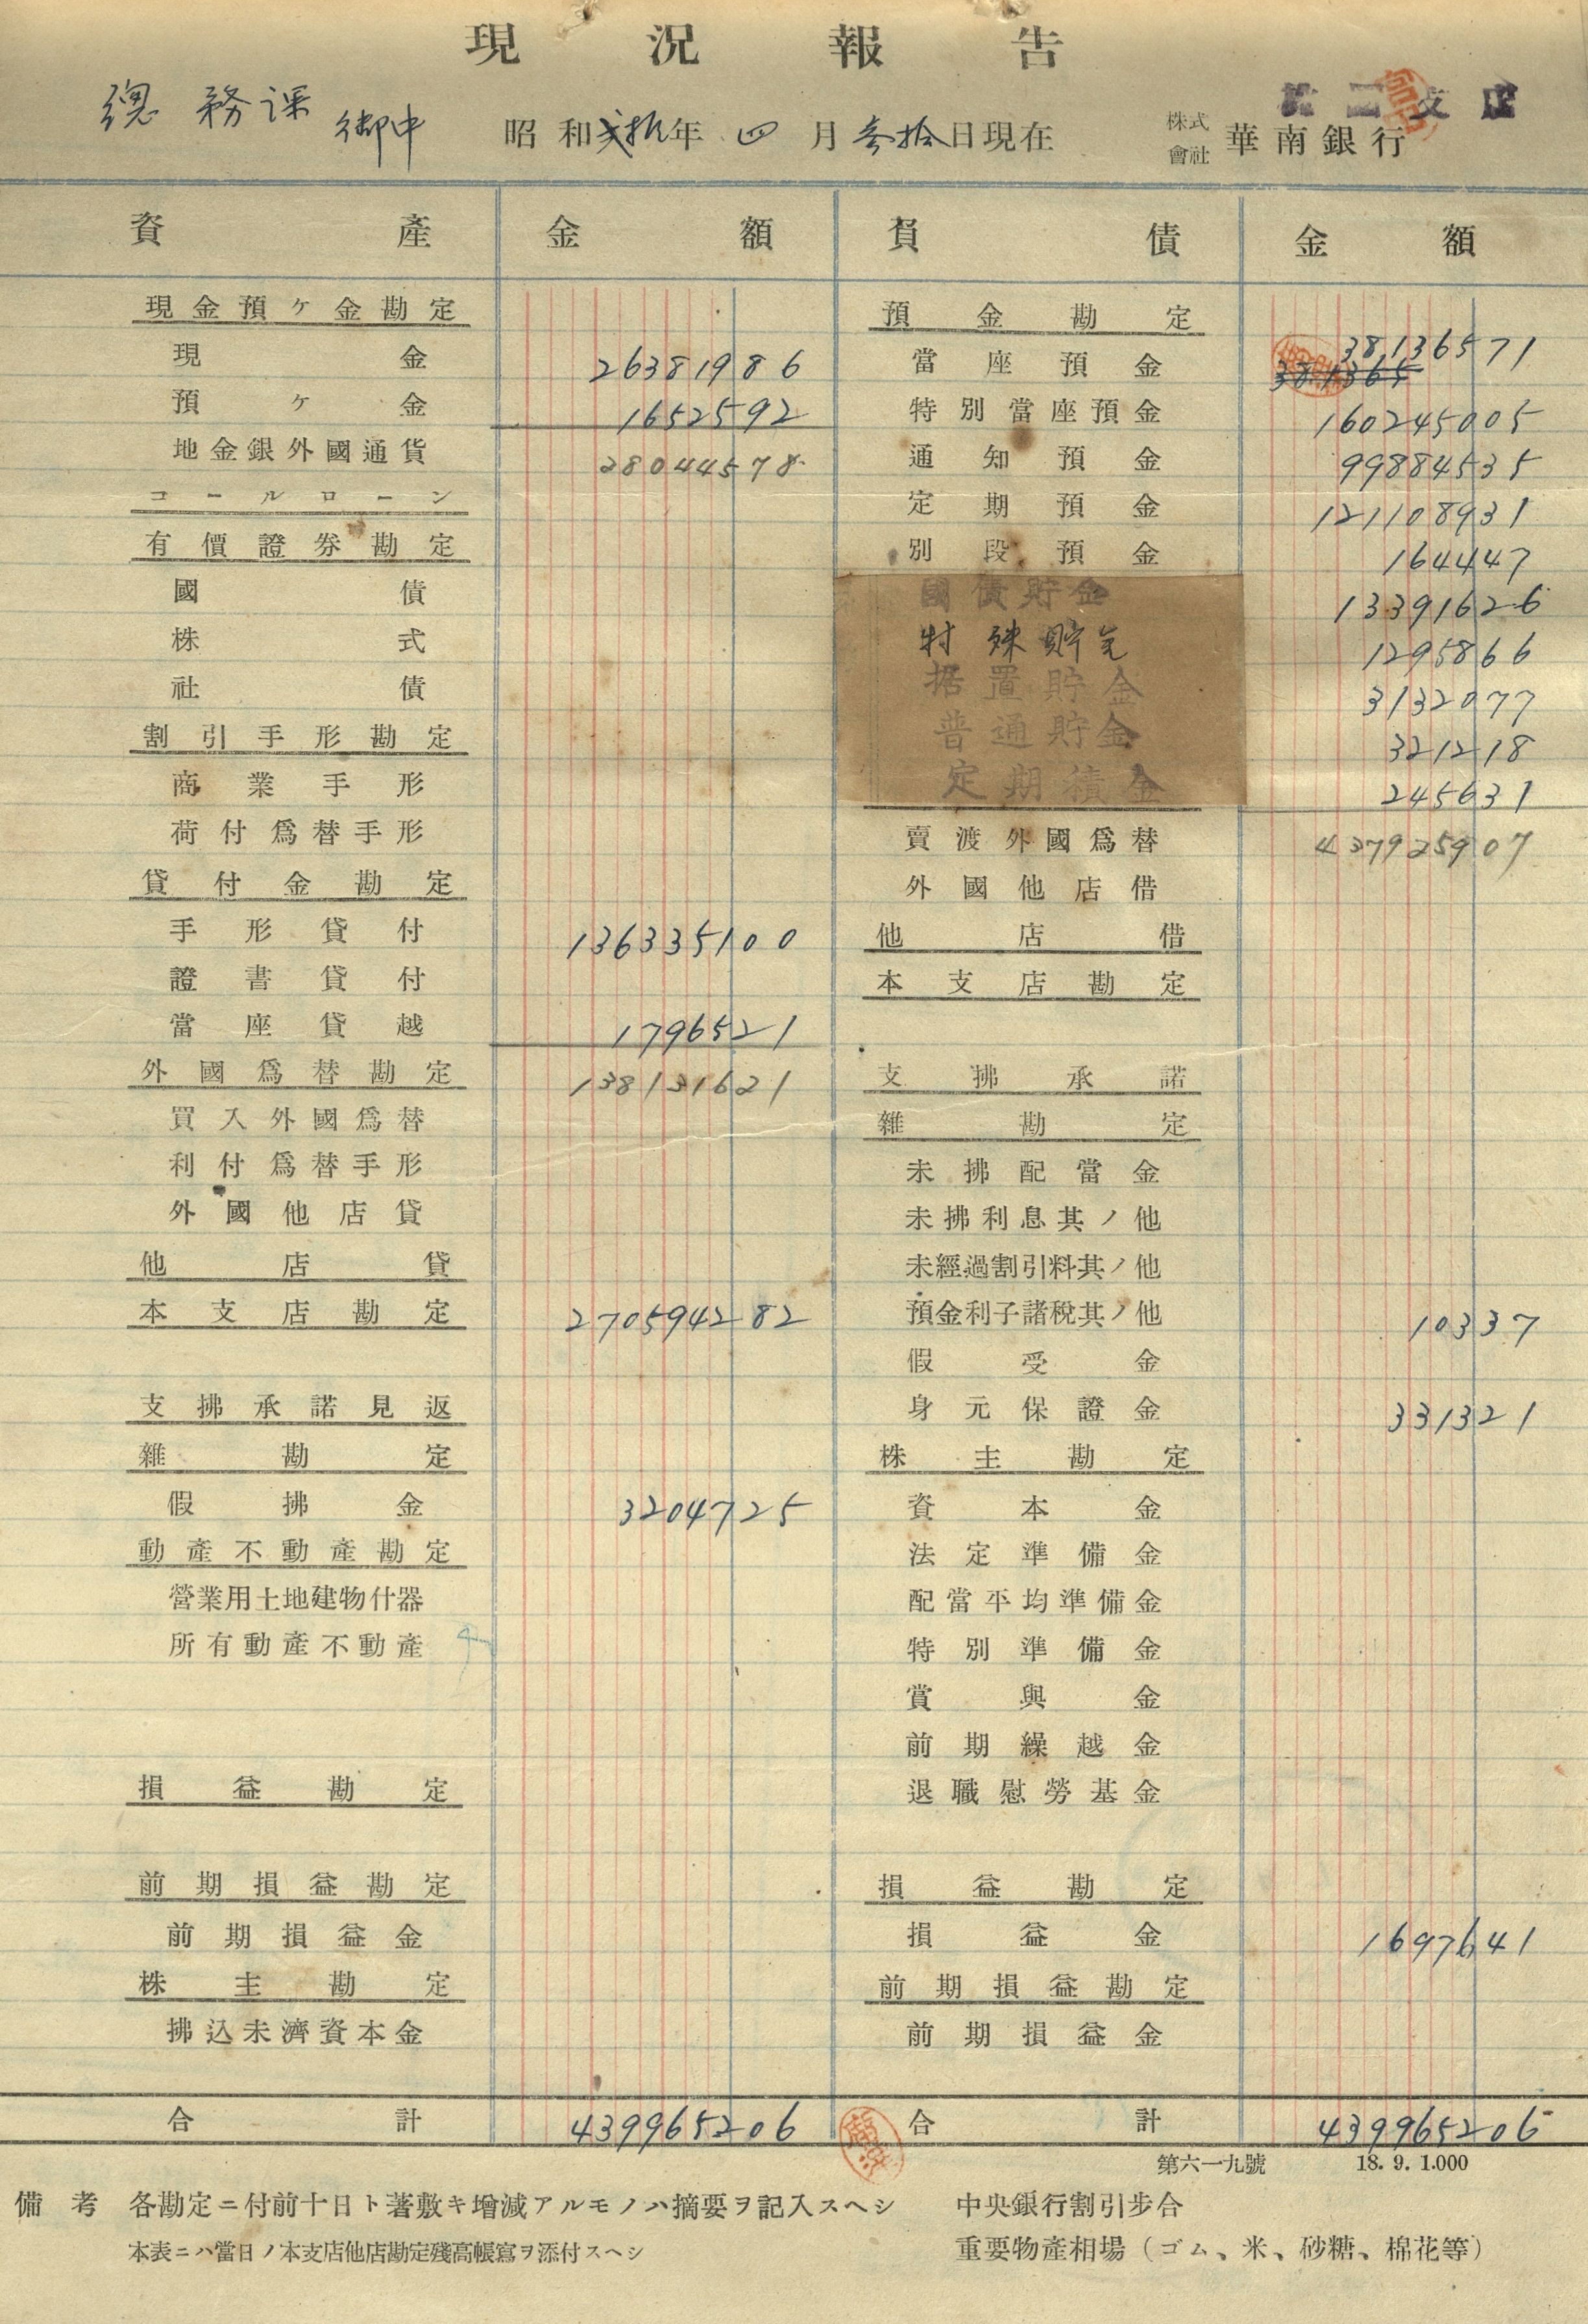 現況報告
總務課 御中
昭和貳拾年 四月參拾日現在
支店
株式會社 華南銀行
資產 金額 負債 金額
現金預ケ金勘定
現金 26381986
預ケ金 1652592
地金銀外國通貨 28044578
コールローン
有價證券勘定
國債
株式
社債
割引手形勘定
商業手形
荷付爲替手形
貸付金勘定
手形貸付 136335100
證書貸付
當座貸越 1796521
外國爲替勘定 138131621
買入外國爲替
利付爲替手形
外國他店貸
他店貸
本支店勘定 270594282
支拂承諾見返
雜勘定
假拂金 3204725
動產不動產勘定
營業用土地建物什器
所有動產不動產
損益勘定
前期損益勘定
前期損益金
株主勘定
拂込未濟資本金
合計 439965206
預金勘定
當座預金 38136571
381365
特別當座預金 160245005
通知預金 99884535
定期預金 121108931
別段預金 164447
國債貯金 13391626
特殊貯金 1295866
据置貯金 3132077
普通貯金 321218
定期積金 245631
賣渡外國爲替 437925907
外國他店借
他店借
本支店勘定
支拂承諾
雜勘定
未拂配當金
未拂利息其ノ他
未經過割引料其ノ他
預金利子諸稅其ノ他 10337
假受金
身元保證金 331321
株主勘定
資本金
法定準備金
配當平均準備金
特別準備金
賞與金
前期繰越金
退職慰勞基金
損益勘定
損益金 1697641
前期損益勘定
前期損益金
合計 439965206
第六一九號 18. 9. 1.000
備考 各勘定ニ付前十日ト著敷キ增減アルモノハ摘要ヲ記入スヘシ
本表ニハ當日ノ本支店他店勘定殘高帳寫ヲ添付スヘシ
中央銀行割引步合
重要物產相場（ゴム、米、砂糖、棉花等）